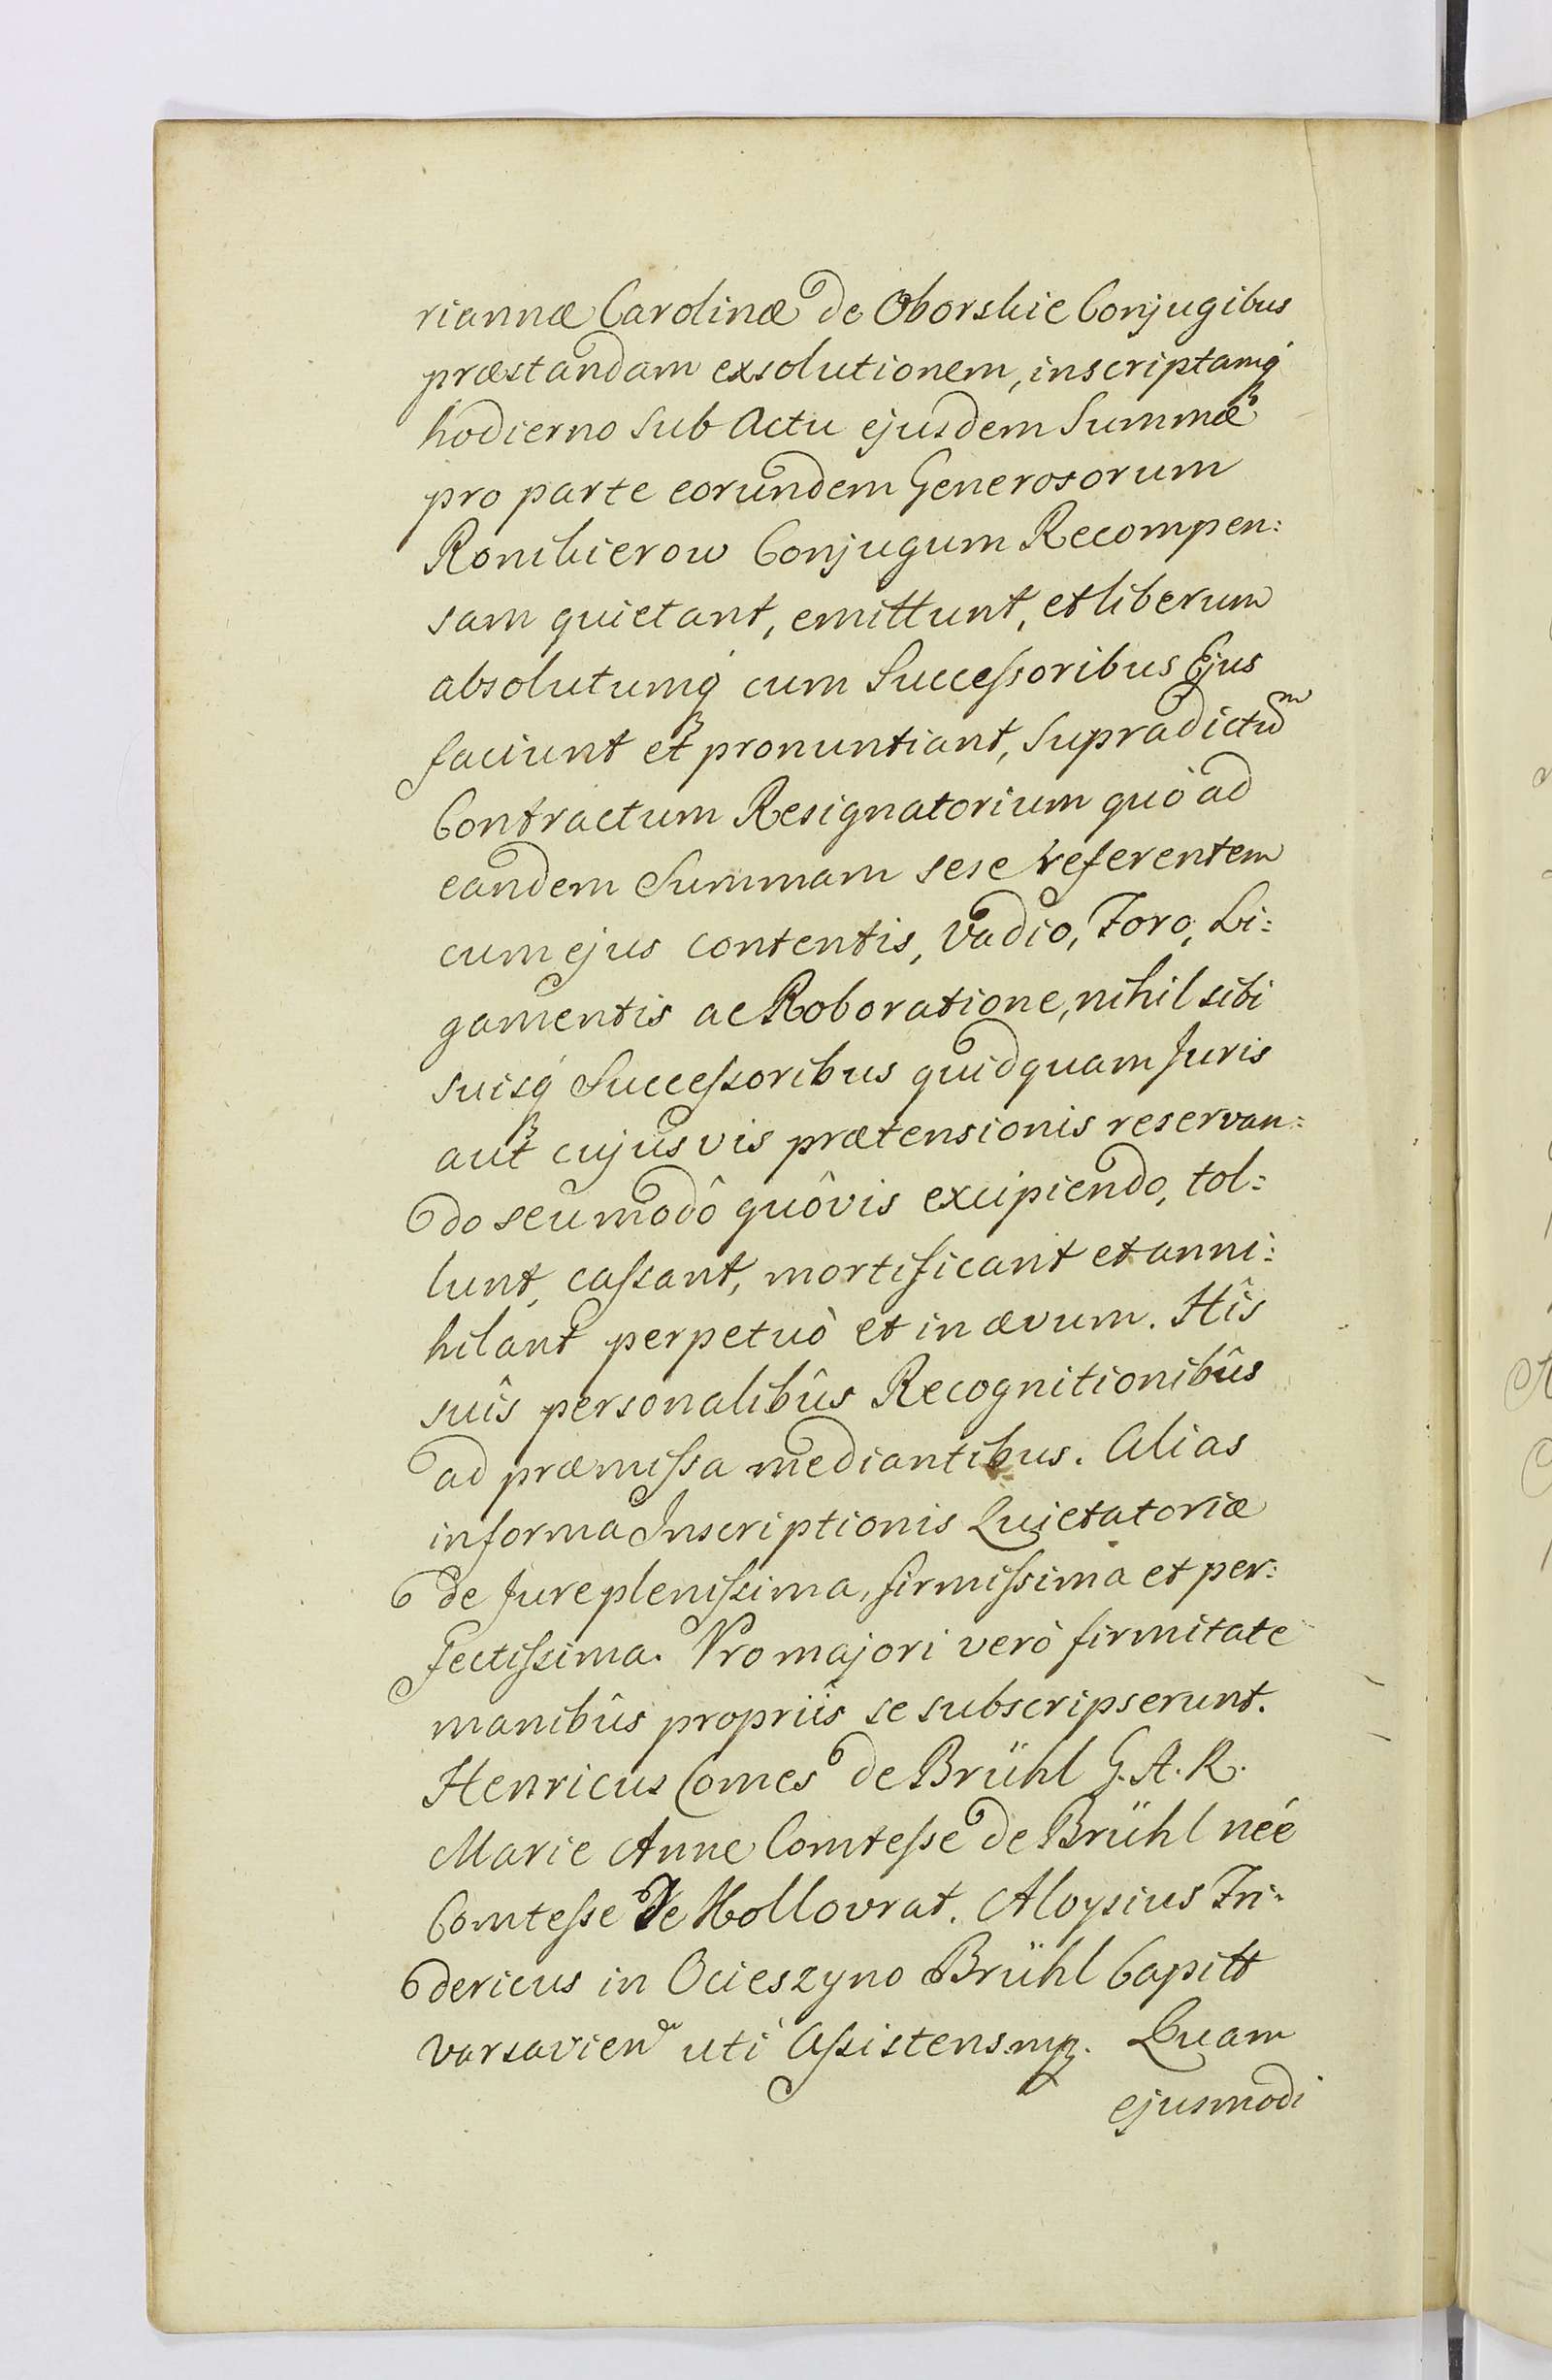 riannæ Carolinæ de Oborskie Conjugibus
præstandam exsolutionem, inscriptamq́
hodierno Sub Actu ejusdem Summæ
pro parte eorundem Generosorum
Ronikierow Conjugum Recompen:
sam quietant, emittunt, et liberum
absolutumq́ cum Succeſsoribus Ejus
faciunt et pronuntiant, Supradictũm
Contractum Resignatorium quò ad
eandem Summam sese referentem
cum ejus contentis, Vadio, Foro, Li:
gamentis ac Roboratione, nihil sibi
suisq́ Succeſsoribus quidquam Juris
aut cujusvis prætensionis reservan:
do seu modô quôvis excipiendo, tol:
lunt, caſsant, mortificant et anni:
hilant perpetuò et in ævum. Hîs
suîs personalibûs Recognitionibûs
ad præmiſsa mediantibus. Alias
in forma Inscriptionis Quietatoriæ
de Jure pleniſsima, firmiſsima et per:
fectiſsima. Pro majori verò firmitate
manibûs propriîs se subscripserunt.
Henricus Comes de Brühl G. A. R.
Marie Anne Comteſse de Brühl neé
Comteſse de Kollovrat. Aloysius Fri:
dericus in Ocieszyno Brühl Capitt
Varsavien uti Aſsistens mp. Quam
ejusmodi